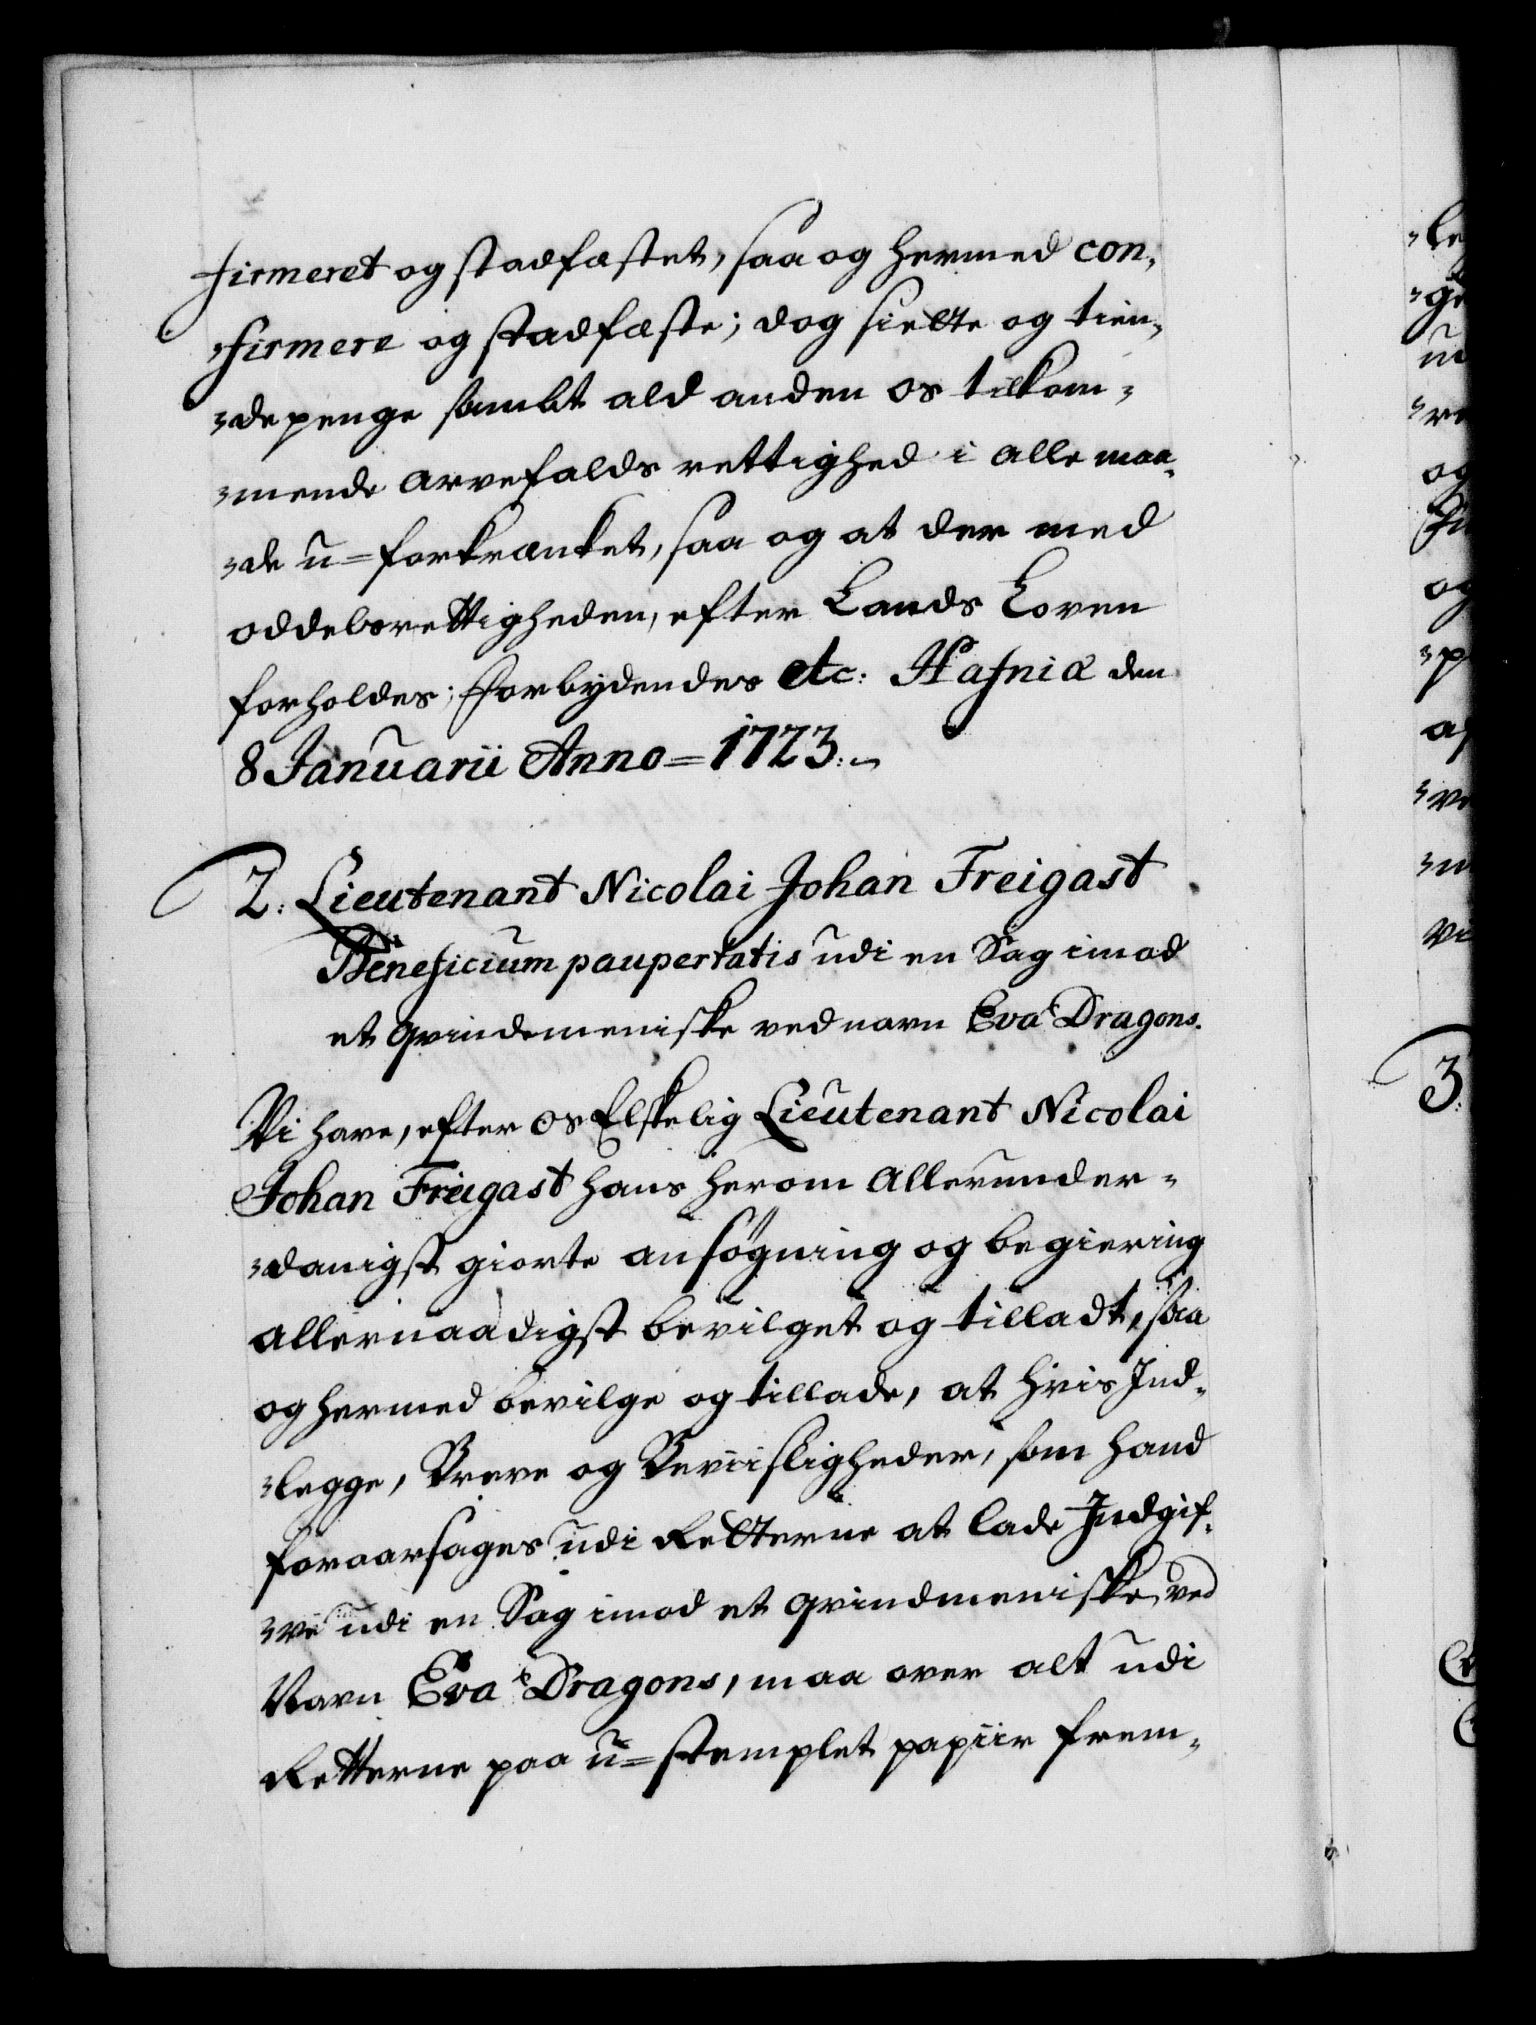 firmeret og stadfæstet, saa og hermed con-
firmere og stadfæste; dog siette og tien-
de penge sambt ald anden os tilkom-
mende arvefalds rettighed i alle maa-
de u=forkrænket, saa og at der med
oddelsrettigheden, efter Lands Loven
forholdes; Forbydendes etc: Hafniæ den
8 Januarii Anno = 1723.
2. Lieutenant Nicolai Johan Freigast
Beneficium paupertatis udi en Sag imod
et qvindemeniske ved navn Eva Dragons.
Vi have, efter os Elskelig Lieutenant Nicolai
Johan Freigast hans herom allerunder-
danigst giorte ansøgning og begiering
allernaadigst bevilget og tilladt, saa
og hermed bevilge og tillade, at hvis Ind-
legge, Breve og Beviisligheder, som hand
foraarsages udi Retterne at lade Indgif-
ve udi en Sag imod et qvindmeniske ved
Navn Eva Dragons, maa over alt udi
Retterne paa u=stemplet papiir frem-
3.